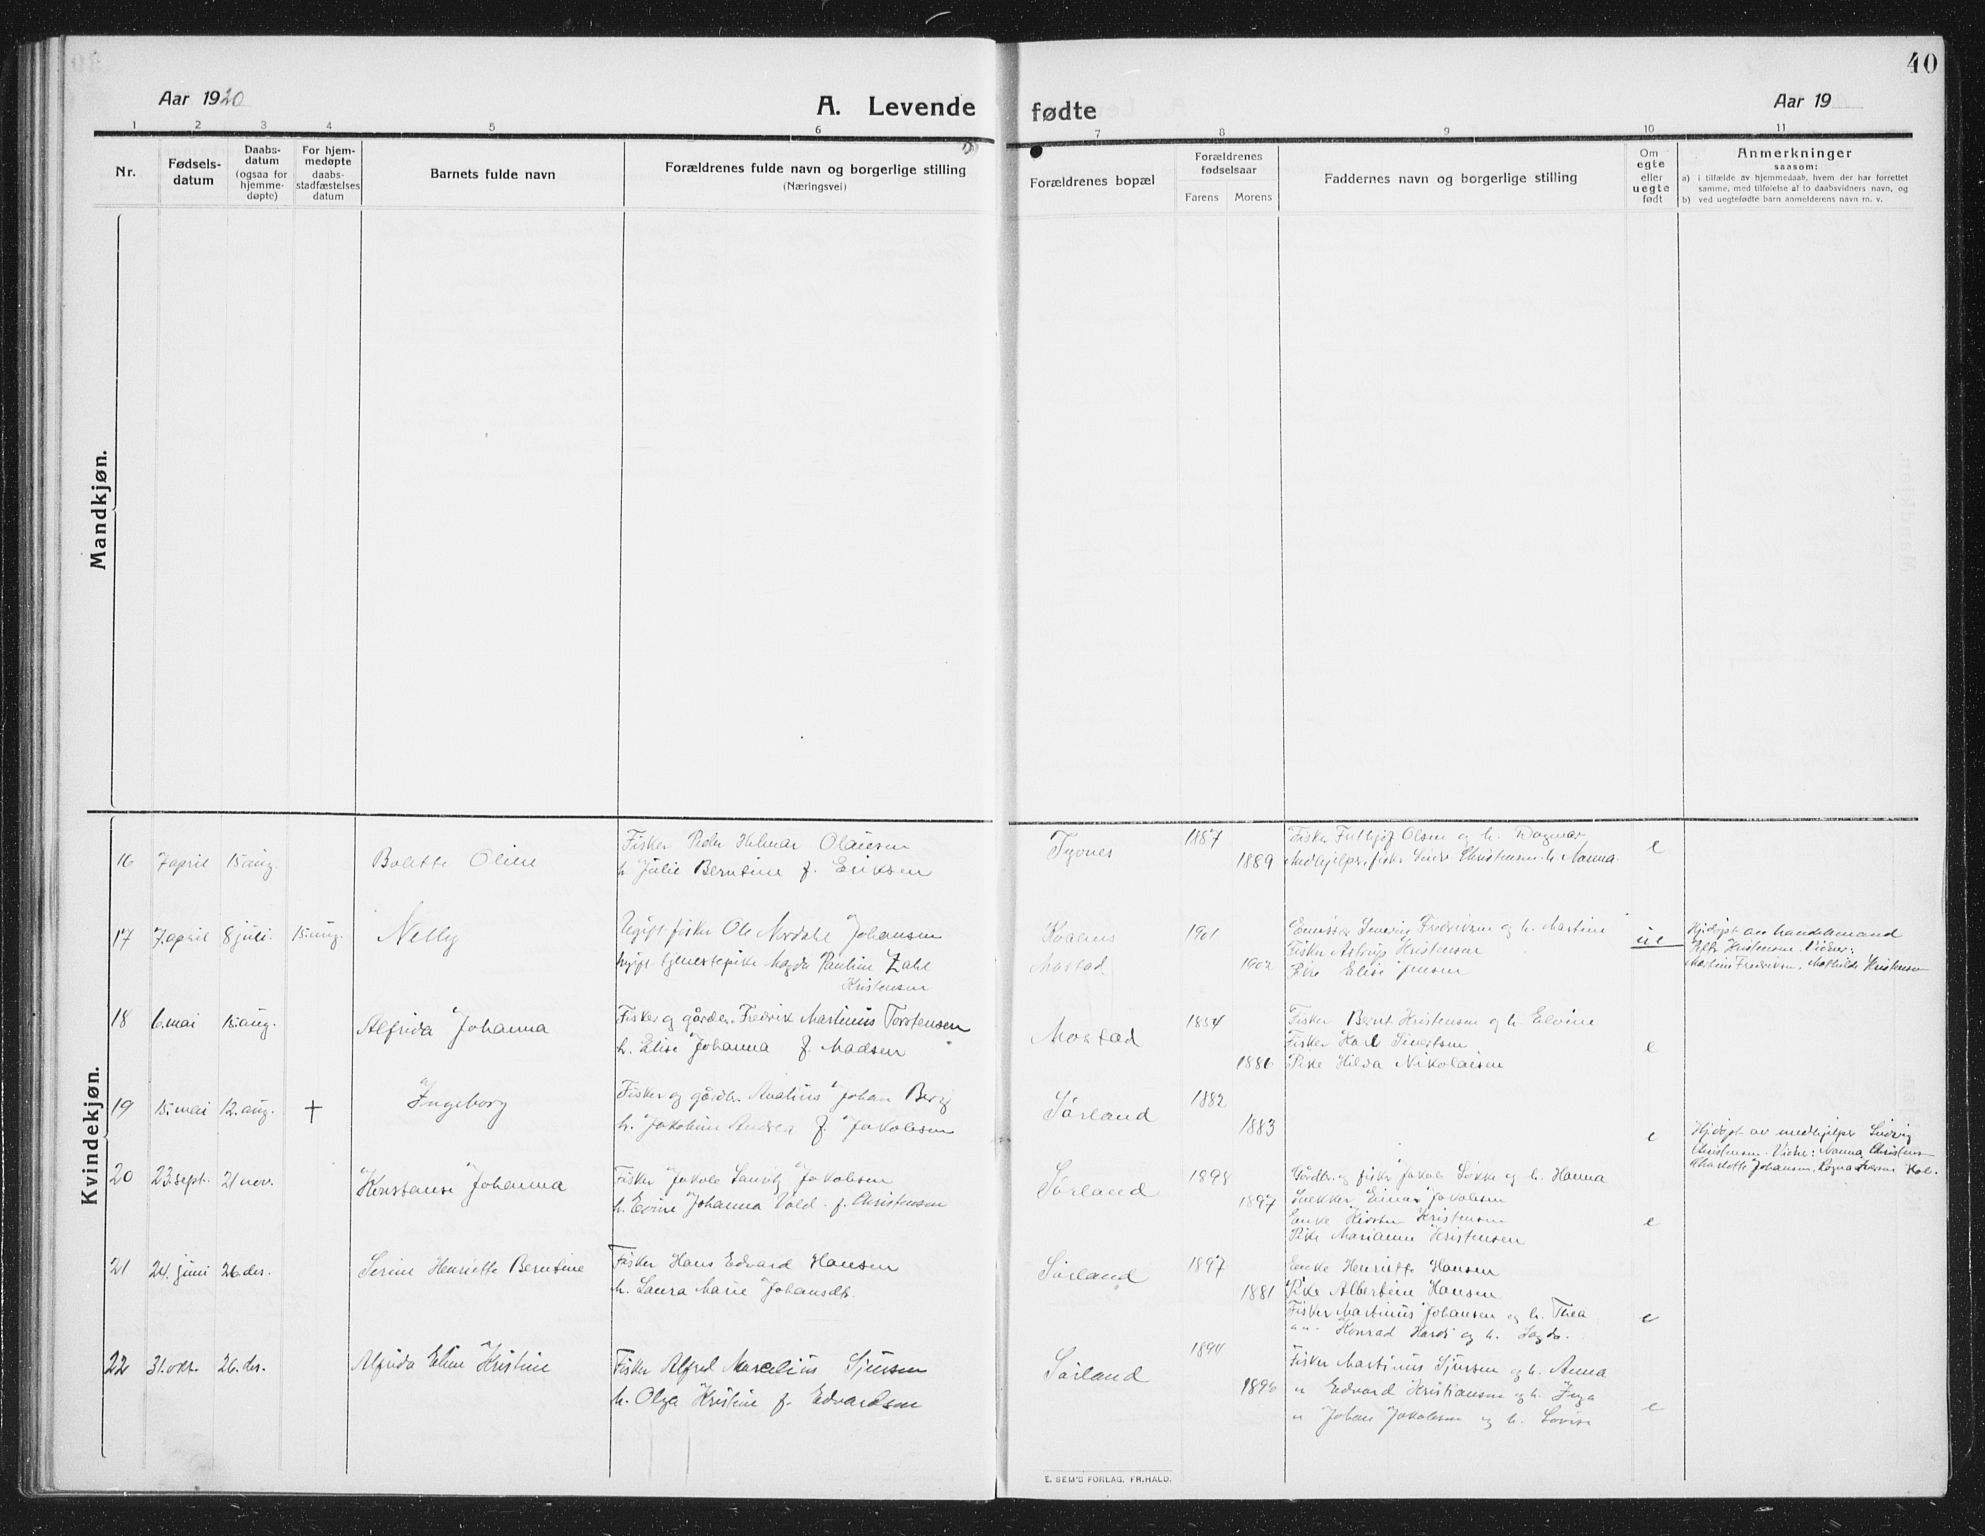 40
Aar 1920
A. Levende
fødte
Aar 19
1 2 3 4 5 6 7 8 9 10 11
Nr.
Fødsels-
datum
Daabs-
datum
(ogsaa for
hjemme-
døpte)
For hjem-
medøpte
daabs-
stadfæstelses
datum
Barnets fulde navn
Forældrenes fulde navn og borgerlige stilling
(Næringsvei)
Forældrenes bopæl
Forældrenes
fødselsaar
Farens Morens
Faddernes navn og borgerlige stilling
Om
egte
eller
uegte
født
Anmerkninger
saasom:
a) i tilfælde av hjemmedaab, hvem der har forrettet
samme, med tilføielse af to daabsvidners navn, og
b) ved uegtefødte barn anmelderens navn m. v.
Mandkjøn.
Kvindekjøn.
16 7 april 15 aug. Bolette Oline
Fisker Peder Helmar Olausen
h. Julie Berntine f. Eriksen
1887
1889
Fisker Olsen og h. Dagmar
Medhjelper, fisker Christensen h. Nanna
e
17 7. april 8 juli. 15. aug. Nelly
Ugift fisker Ole Nordahl Johansen
ugift tjenestepike Magda Pauline Zahl
Kristensen
Mastad
1901
1902
Severin Fredriksen og h. Martine
Fisker Astrup Kristensen
Pike Elise Jensen
ue
Hj.døpt av handelsmand
Kristensen. Vidner:
Martine Fredriksen, Mathilde Kristensen
18 6. mai 15. aug. Alfrida Johanna
Fisker og gårdbr. Fredrik Martinus Torstensen
h. Elise Johanna f. Madsen
Mostad
1854
1886
Fisker Bernt Kristensen og h. Elvine
Fisker Karl Sivertsen
Pike Hilda Nikolaisen
e
19 15. mai 12. aug. † Ingeborg
Fisker og gårdbr. Analius Johan Berg
h. Jakobine Andrea f. Jakobsen
Sørland
1882
1883
e
Hj.døpt av medhjelper Ludvig
Christensen. Vidner: Nanna Christens
Charlotte Johansen
20 23. sept. 21 nov. Konstanse Johanna
Fisker Jakob Lauritz Jakobsen
h. Evine Johanna Vold f. Christensen
Sørland
1898
1897
Gårdbr. og fisker Jakob Løkke og h. Hanna
Snekker Einar Jakobsen
Enke Kristensen
Pike Marianne Kristensen
e
21 24. juni 26. des. Serine Henriette Berntine
Fisker Hans Edvard Hansen
h. Laura Marie Johansdtr.
Sørland
1897
1881
Enke Henriette Hansen
Pike Albertine Hansen
Fisker Martinus Johansen og h. Thea
" " Konrad og h.
e
22 31. okt. 26. des. Alfrida Eline Kristine
Fisker Alfred Marcelius Sjursen
h. Olga Kristine f. Edvardsen
Sørland
1894
1896
Fisker Martinus Sjursen og h. Anna
" Edvard Kristiansen og h. Inga
" Johan Jakobsen og h. Lovise
e
E. SEM'S FORLAG, FR.HALD.